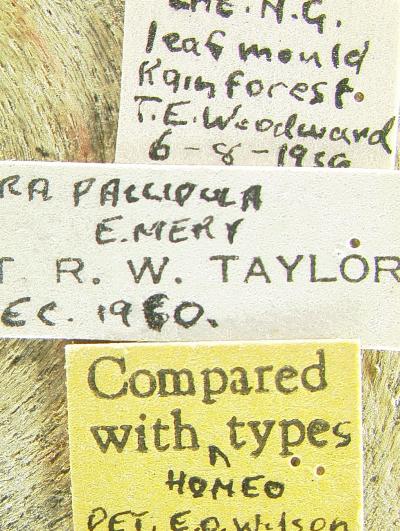 LAE. N.G.
leaf mould
Rainforest.
T.E. Woodward
6-8-1956
RA PALLIDULA
E.MERY
T R. W. TAYLOR
EC. 1960.
Compared
with ^ types
HOMEO
DET. E.O. Wilson